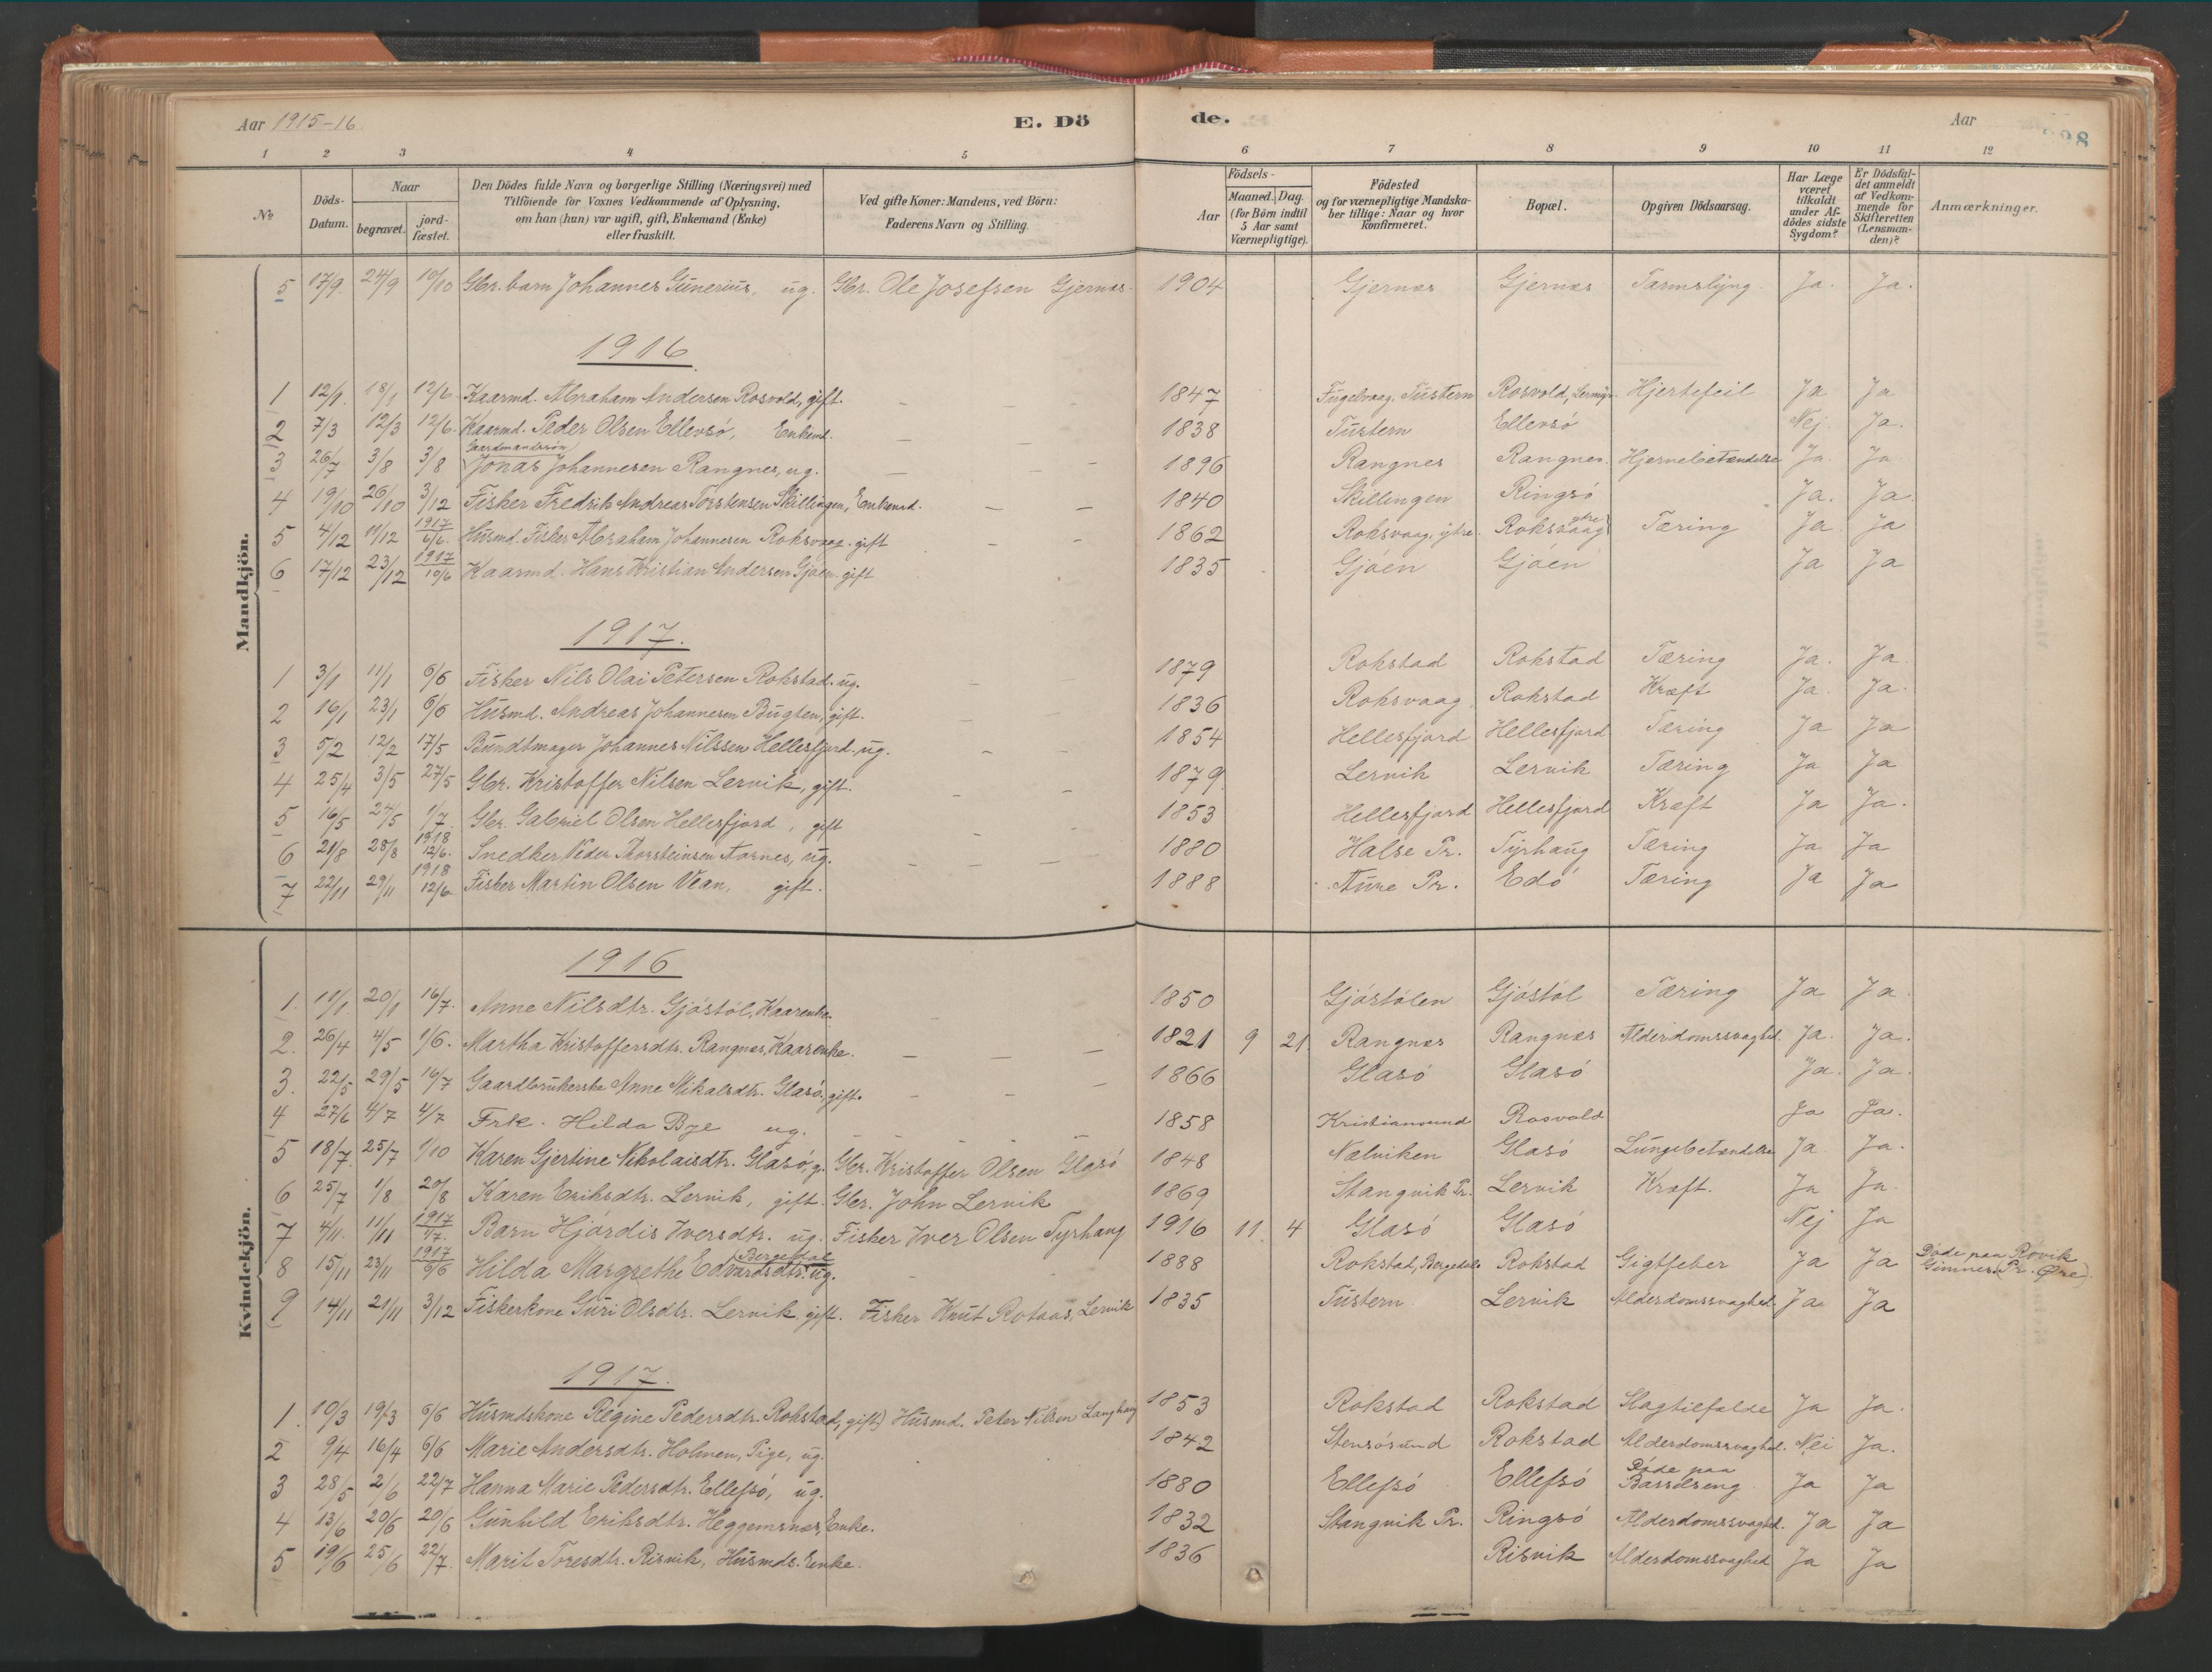 Aar 1915-16 E. Dö de. Aar
1 2 3 4 5 6 7 8 9 10 11 12
№ Döds-Datum. Naar begravet. jord-fæstet. Den Dödes fulde Navn og borgerlige Stilling (Næringsvei) med Tilföiende for Voxnes Vedkommende af Oplysning, om han (hun) var ugift, gift, Enkemand (Enke) eller fraskilt. Ved gifte Koner: Mandens, ved Börn: Faderens Navn og Stilling. Födsels- Aar Maaned. Dag. (for Börn indtil 5 Aar samt Værnepligtige). Födested og for værnepligtige Mandskaber tillige: Naar og hvor Konfirmeret. Bopæl. Opgiven Dödsaarsag. Har Læge været tilkaldt under Afdödes sidste Sygdom? Er Dödsfaldet anmeldt af Vedkommende for Skifteretten (Lensmanden)? Anmærkninger.
Mandkjön.
5 17/9. 24/9 10/10 Gbr. barn Johannes Gunerius, ug. Gbr. Ole Josefsen Gjernæs 1904 Gjernæs Gjernæs Tarmslyng. Ja. Ja.
1916
1 12/1. 18/1 12/6. Kaarmd. Abraham Andersen Rosvold, gift. 1847 Fugelvaag, Tustern Rosvold, Hjertefeil Ja Ja
2 7/3 12/3 12/6. Kaarmd. Peder Olsen Ellevsö, Enkemd. 1838 Tustern Ellevsö Nej Ja.
3 26/7 3/8 3/8 Gaardmandssön Jonas Johannesen Rangnes, ug. 1896 Rangnes Rangnes. Hjernebetændelse Ja. Ja
4 19/10 26/10 3/12 Fisker Fredrik Andreas Torstensen Skillingen, Enkemd. 1840 Skillingen Ringsö Ja. Ja
5 4/12 11/12 1917 6/6. Husmd. Fisker Abraham Johannesen Roksvaag. gift 1862 Roksvaag, ytre. Roksvaag ytre Tæring Ja Ja
6 17/12 23/12 1917 10/6 Kaarmd. Hans Kristian Andersen Gjöen. gift 1835 Gjöen Gjöen Ja Ja
1917.
1 3/1 11/1 6/6 Fisker Nils Olai Petersen Rokstad. ug. 1879 Rokstad Rokstad Tæring Ja. Ja.
2 16/1 23/1 6/6 Husmd. Andreas Johannesen Bugten, gift. 1836 Roksvaag Rokstad Kræft Ja. Ja.
3 5/2 12/2 17/5 Bundtmager Johannes Nilssen Hellesfjord. ug. 1854 Hellesfjord Hellesfjord Tæring Ja Ja
4 25/4 3/5 27/5 Gbr. Kristoffer Nilsen Lervik, gift. 1879 Lervik Lervik Tæring Ja Ja
5 16/5 24/5 1/7. Gbr. Gabriel Olsen Hellesfjord, gift 1853 Hellesfjord Hellesfjord Kræft Ja Ja.
6 21/8 28/8 1918 12/6. Snedker Peder Thorsteinsen Aarnes, ug. 1880 Halse Pr. Tyrhaug Tæring Ja Ja
7 22/11 29/11 1918 12/6 Fisker Martin Olsen Vean, gift. 1888 Aure Pr. Edö Tæring Ja Ja
Kvindekjön.
1916
1. 11/1 20/1 16/7. Anne Nilsdtr. Gjöstöl, Kaarenke. 1850 Gjöstölen Gjöstöl Tæring Ja Ja.
2. 26/4 4/5 1/6. Martha Kristoffersdtr. Rangnæs, Kaarenke. 1821 9 21. Rangnæs Rangnæs Alderdomssvaghed. Ja. Ja.
3. 22/5 29/5 16/7 Gaardbrukerske Anne Nikalsdtr. Glasö, gift. 1866 Glasö Glasö Ja. Ja.
4 27/6 4/7 4/7 Frk. Hilda Bye ug. 1858 Kristiansund Rosvold Ja Ja.
5 18/7 25/7 1/10 Karen Gjertine Nikolaisdtr. Glasö, g. Gbr. Kristoffer Olsen Glasö 1848 Nælviken Glasö Lungebetændelse Ja Ja.
6 25/7 1/8 20/8 Karen Eriksdtr. Lervik, gift. Gbr. John Lervik 1869 Stangvik Pr. Lervik Kræft. Ja Ja.
7 4/11. 11/11 1917 1/7. Barn Hjördis Iversdtr. ug. Fisker Iver Olsen Tyrhaug 1916 11. 4 Glasö Glasö Nej Ja
8 15/11 23/11 1917 6/6 Hilda Margrethe Edvardsdtr. (Bergedal) ug. 1888 Rokstad, Bergedal Rokstad Gigtfeber Ja Ja Döde paa Rövik Gimnes (Pr. Øre).
9 14/11 21/11 3/12 Fiskerkone Guri Olsdtr. Lervik gift. Fisker Knut Rotaas, Lervik 1835 Tustern Lervik Alderdomssvaghed. Ja. Ja
1917.
1. 10/3 19/3 6/6 Husmdskone Regine Pedersdtr. Rokstad, gift) Husmd. Peter Nilsen Langhaug 1853 Rokstad Rokstad Slagtilfælde Ja Ja.
2 9/4 16/4 6/6 Marie Andersdtr. Holmen, Pige, ug. 1842 Stensösund Rokstad Alderdomssvaghed. Nei Ja.
3 28/5 2/6 22/7 Hanna Marie Pedersdtr. Ellefsö, ug. 1880 Ellefsö Ellefsö Döde paa Barselseng Ja Ja
4 13/6 20/6 20/6 Gunhild Eriksdtr. Heggemsnæs, Enke. 1832 Stangvik Pr. Ringsö Alderdomssvaghed. Ja Ja
5 19/6 25/6 22/7. Marit Toresdtr. Risvik, Husmds. Enke. 1836 Risvik Alderdomssvaghed Ja Ja